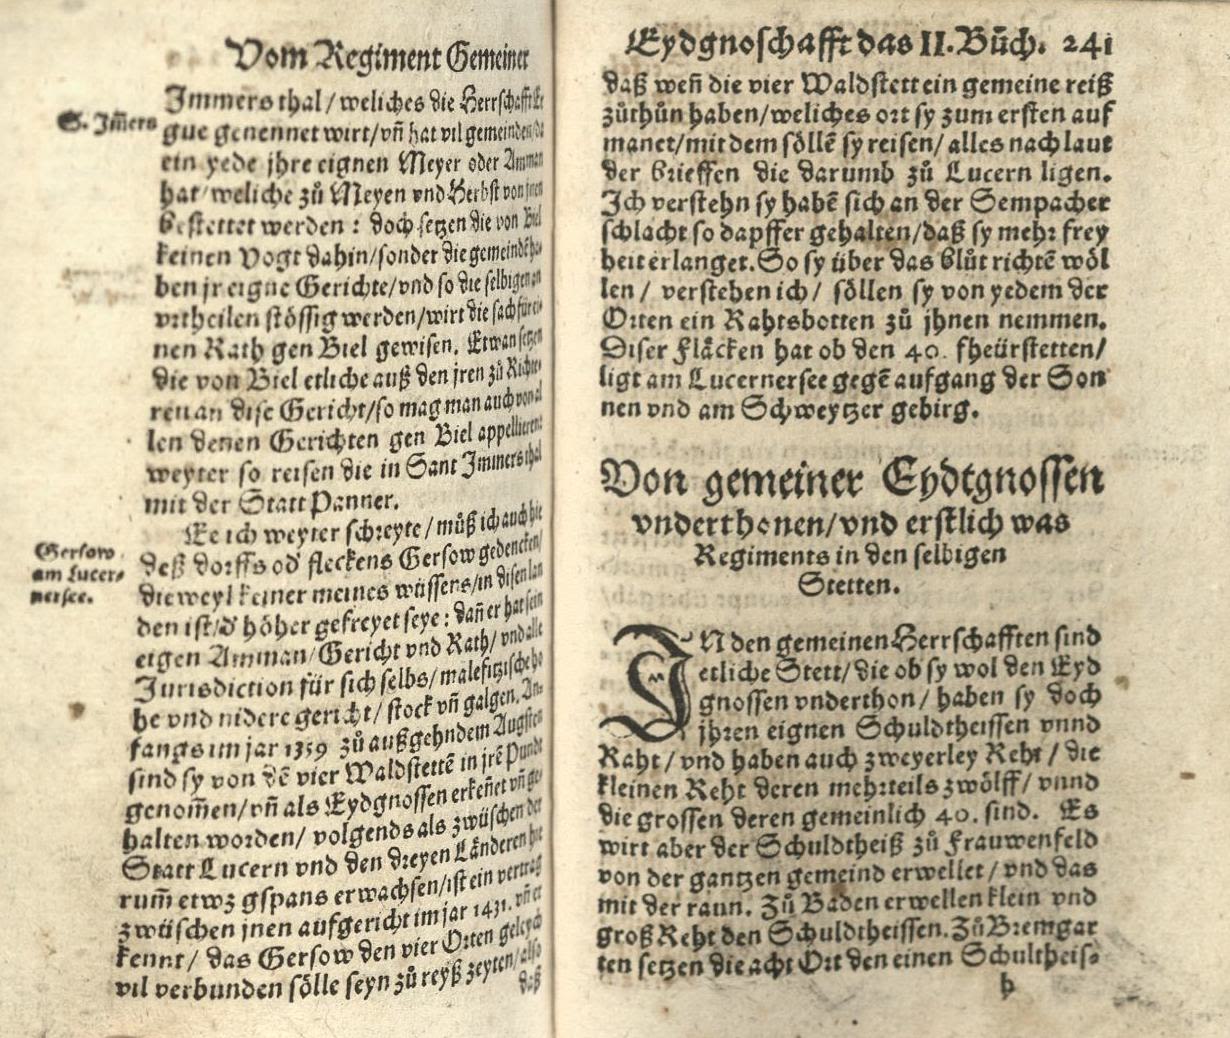 Vom Regiment Gemeiner
S. Im̃ers
Immersthal / weliches die Herrschafft Er
gue genennet wirt / vñ hat vil gemeinden / da
ein yede jhre eignen Meyer oder Amman
hat / weliche zů Meyen vnd Herbst von jnen
bestettet werden : doch setzen die von Biel
keinen Vogt dahin / sonder die gemeindẽ ha
ben jr eigne Gerichte / vnd so die selbigen an
vrtheilen stössig werden / wirt die sach für ei
nen Rath gen Biel gewisen. Etwan setzen
die von Biel etliche auß den jren zů Richte-
ren an dise Gericht / so mag man auch von al
len denen Gerichten gen Biel appellieren:
weyter so reisen die in Sant Immersthal
mit der Statt Panner.
Gersow
am Lucer-
nersee.
Ee ich weyter schreyte / můß ich auch hie
deß dorffs od' fleckens Gersow gedencken /
die weyl keiner meines wüssens / in disen lan
den ist / d' höher gefreyet seye : dañ er hat sein
eigen Amman / Gericht vnd Rath / vnd alle
Jurisdiction für sich selbs / malefitzische ho
he vnd nidere gericht / stock vñ galgen. An-
fangs im jar 1359 zů außgehndem Augsten
sind sy von dẽ vier Waldstettẽ in jrẽ Pundt
genom̃en / vñ als Eydgnossen erkeñet vñ ge
halten worden / volgends als zwüschen der
Statt Lucern vnd den dreyen Länderen hie
rum̃ etwz gspans erwachsen / ist ein vertrag
zwüschen jnen aufgericht im jar 1431. vñ er
kennt / das Gersow den vier Orten geleych
vil verbunden sölle seyn zů reyß zeyten / also
daß
Eydgnoschafft das II. Bůch. 241
daß weñ die vier Waldstett ein gemeine reiß
zůthůn haben / weliches ort sy zum ersten auf
manet / mit dem söllẽ sy reisen / alles nach laut
der brieffen die darumb zů Lucern ligen.
Ich verstehn sy habẽ sich an der Sempacher
schlacht so dapffer gehalten / daß sy mehr frey
heit erlanget. So sy über das blůt richtẽ wöl
len / verstehen ich / söllen sy von yedem der
Orten ein Rahtsbotten zů jhnen nemmen.
Diser fläcken hat ob den 40. fheürstetten /
ligt am Lucernersee gegẽ aufgang der Son
nen vnd am Schweytzer gebirg.
Von gemeiner Eydtgnossen
vnderthonen / vnd erstlich was
Regiments in den selbigen
Stetten.
IN den gemeinen Herrschafften sind
etliche Stett / die ob sy wol den Eyd
gnossen vnderthon / haben sy doch
jhren eignen Schuldtheissen vnnd
Raht / vnd haben auch zweyerley Reht / die
kleinen Reht deren mehrteils zwölff / vnnd
die grossen deren gemeinlich 40. sind. Es
wirt aber der Schuldtheiß zů Frauwenfeld
von der gantzen gemeind erwellet / vnd das
mit der raun. Zů Baden erwellen klein vnd
groß Reht den Schuldtheissen. Zů Bremgar
ten setzen die acht Ort den einen Schultheis-
h